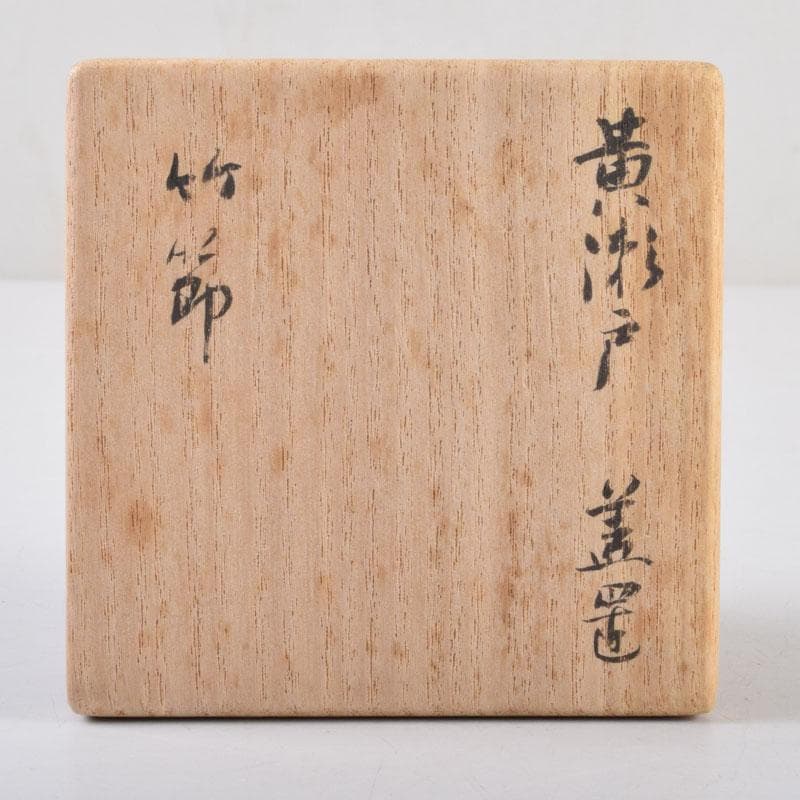 黄瀬戸 蓋置
竹節